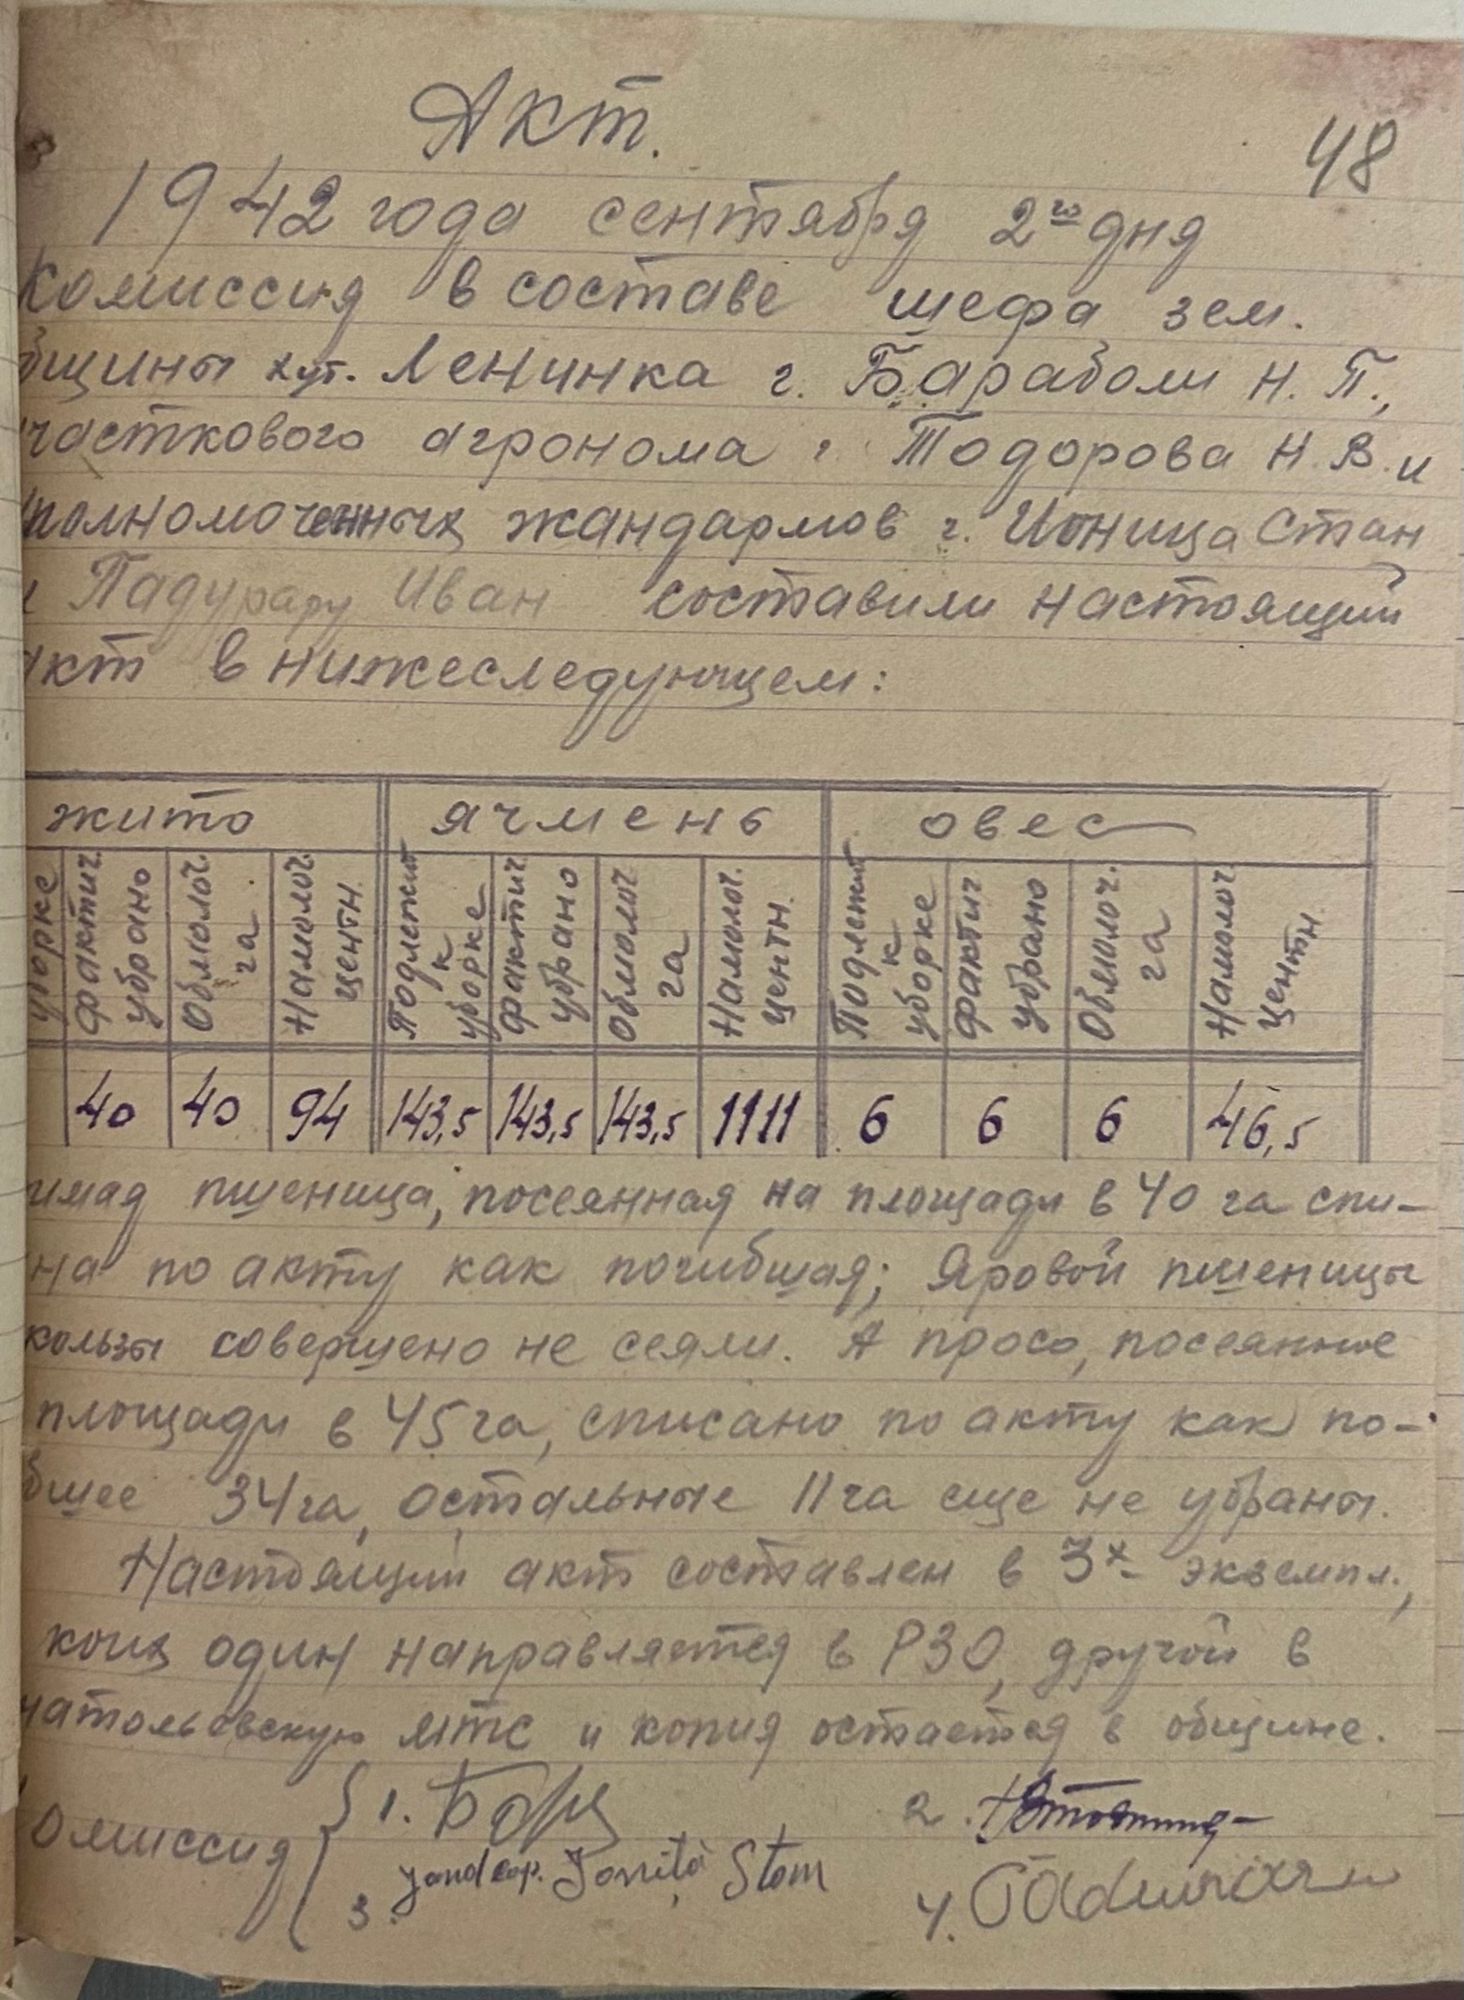 48
Акт.
1942 года сентября 2го дня
Комиссия в составе шефа зем.
бщины хут. Ленинка г. Бараболи Н. П.,
часткового агронома г. Тодорова Н. В. и
полномоченных жандармов г. Ионица Стан
и Падурару Иван составили настоящий
акт в нижеследующем:
жито ячмень овес
уборке фактич. убрано Обмолоч. га Намолоч. центн. Подлежит к уборке фактич. убрано Обмолоч га Намолоч. центн. Подлежит к уборке фактич убрано Обмолоч. га Намолоч. центн.
40 40 94 143,5 143,5 143,5 1111 6 6 6 46,5
имая пшеница, посеянная на площади в 40 га спи-
на по акту как погибшая; Яровой пшеницы
кользы совершено не сеяли. А просо, посеянное
площади в 45 га, списано по акту как по-
бшее 34 га, остальные 11 га еще не убраны.
Настоящий акт составлен в 3х экземпл.,
коих один направляется в РЗО, другой в
натольевскую МТС и копия остается в общине.
омиссия 1. 2.
3. Jand cap. Ioniță Stan 4.